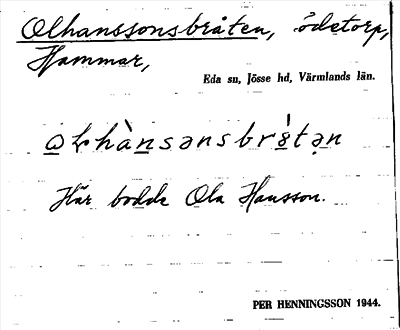 Olhanssonsbråten, ödetorp,
Hammar,
Eda sn, Jösse hd, Värmlands län.
Här bodde Ola Hansson.
PER HENNINGSSON 1944.